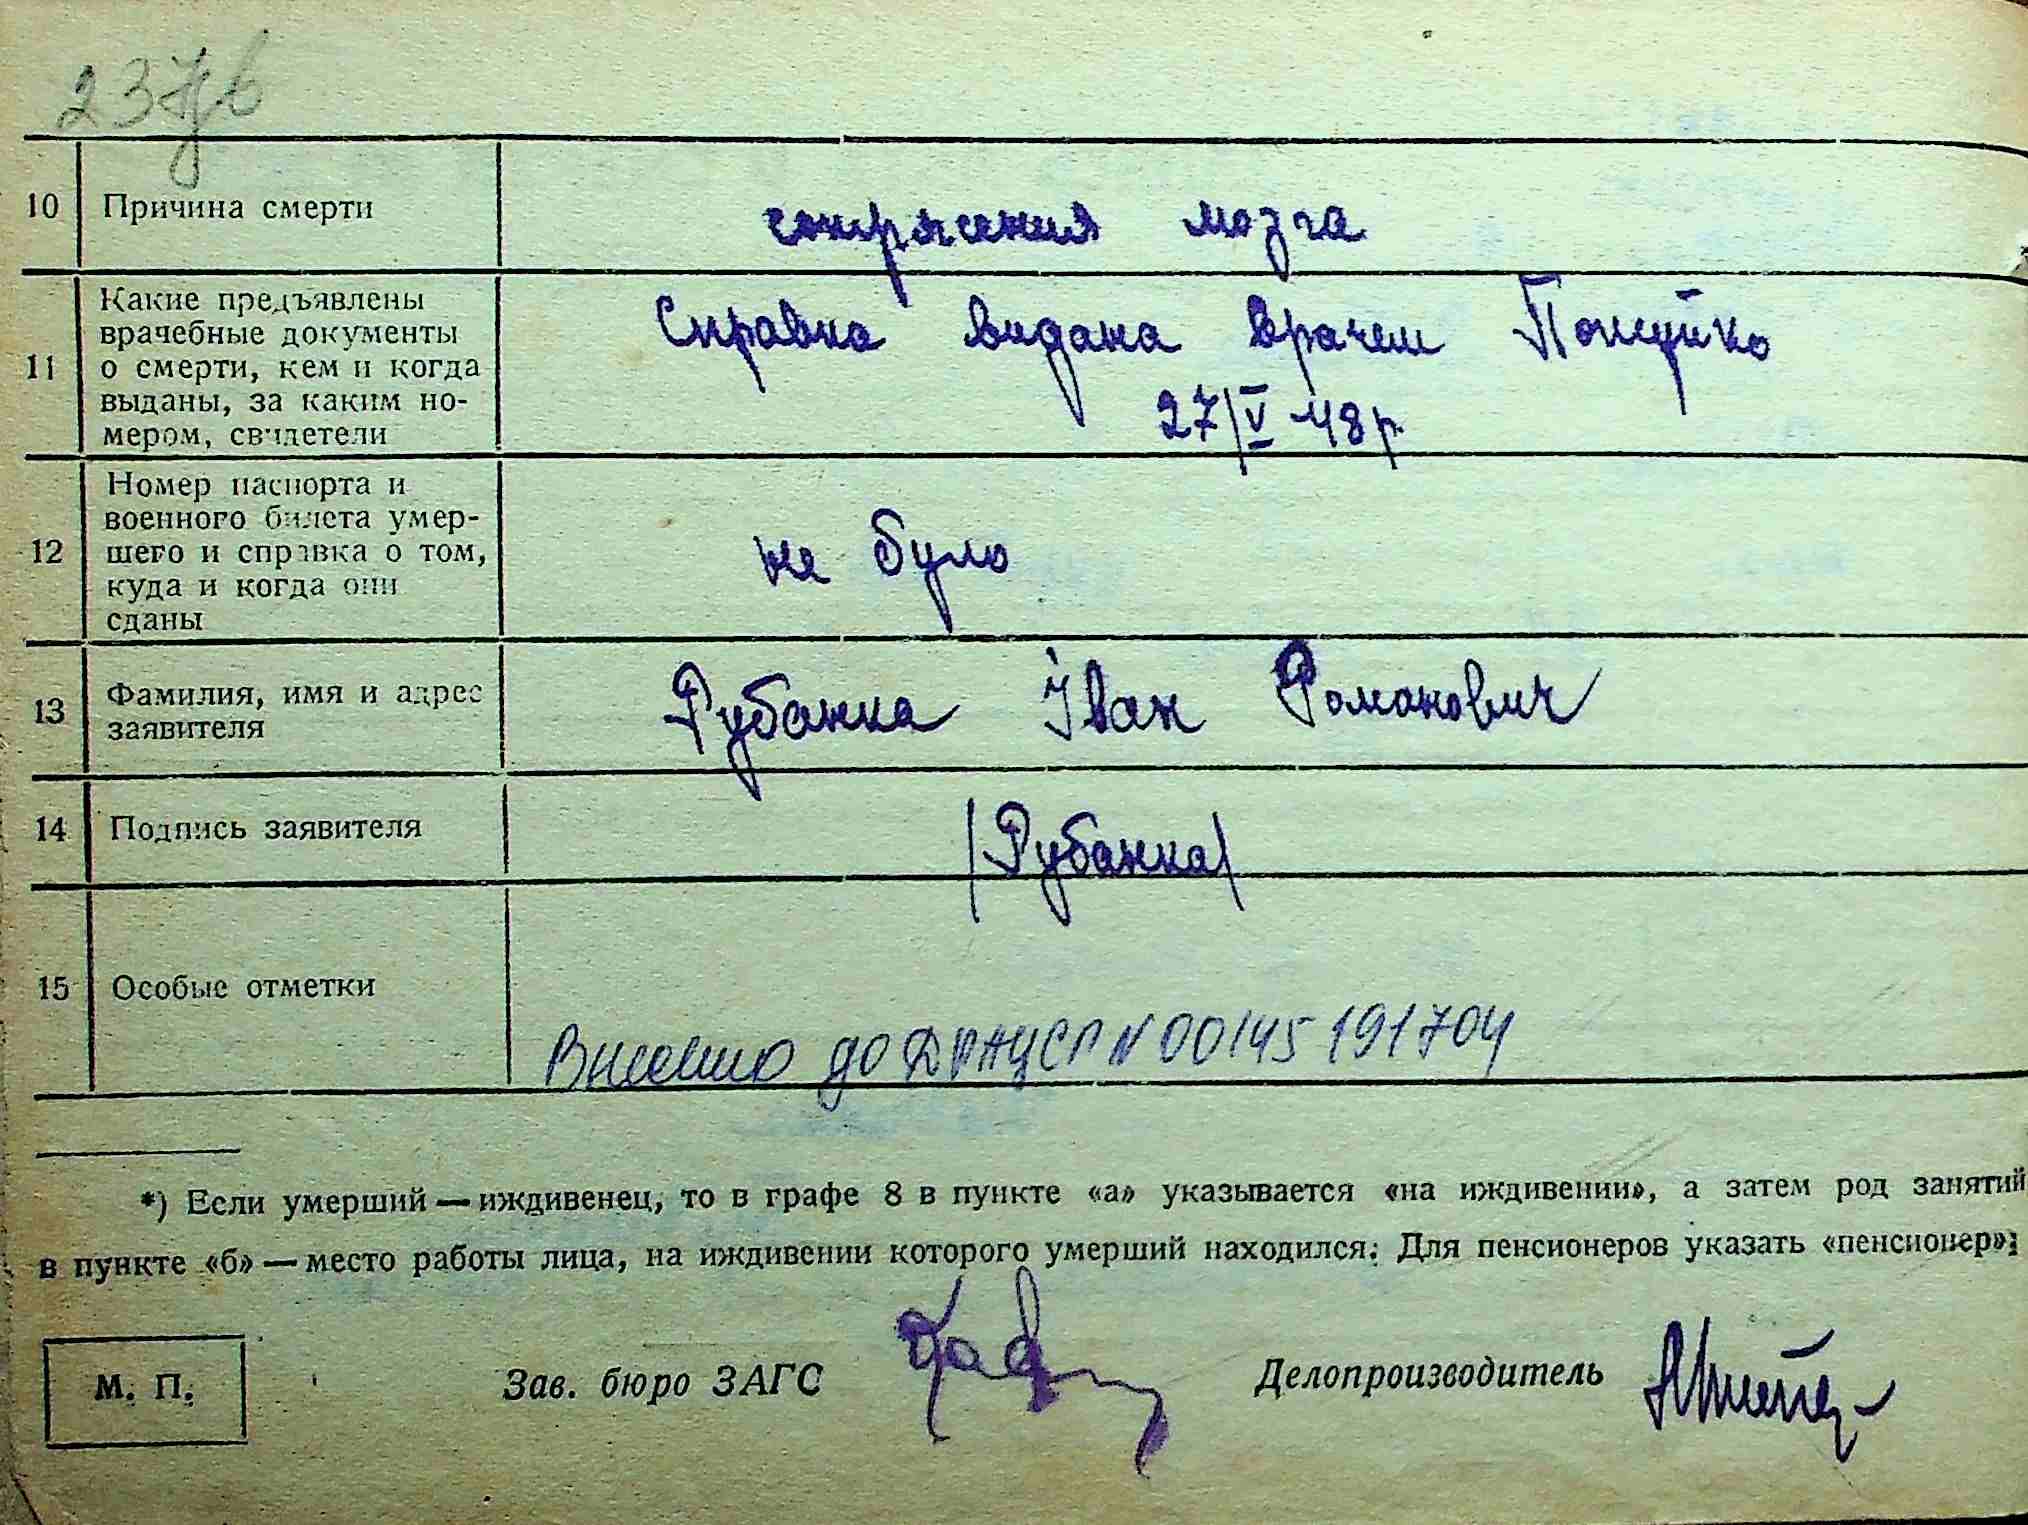 10 Причина смерти сотрясения мозга
11 Какие предъявлены врачебные документы о смерти, кем и когда выданы, за каким номером, свидетели
Справка видана врачем
27/V 48 р.
12 Номер паспорта и военного билета умершего и справка о том, куда и когда они сданы
не було
13 Фамилия, имя и адрес заявителя Рубанка Іван Романович
14 Подпись заявителя /Рубанка/
15 Особые отметки
Внесено до ДРАЦСГ N 00145191704
*) Если умерший — иждивенец, то в графе 8 в пункте «а» указывается «на иждивении», а затем род занятий
в пункте «б» — место работы лица, на иждивении которого умерший находился. Для пенсионеров указать «пенсионер»;
М. П. Зав. бюро ЗАГС Делопроизводитель